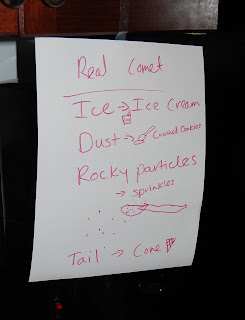 Real Comet
Ice → Ice Cream
Dust → Crushed Cookies
Rocky particles
→ sprinkles
Tail → Cone